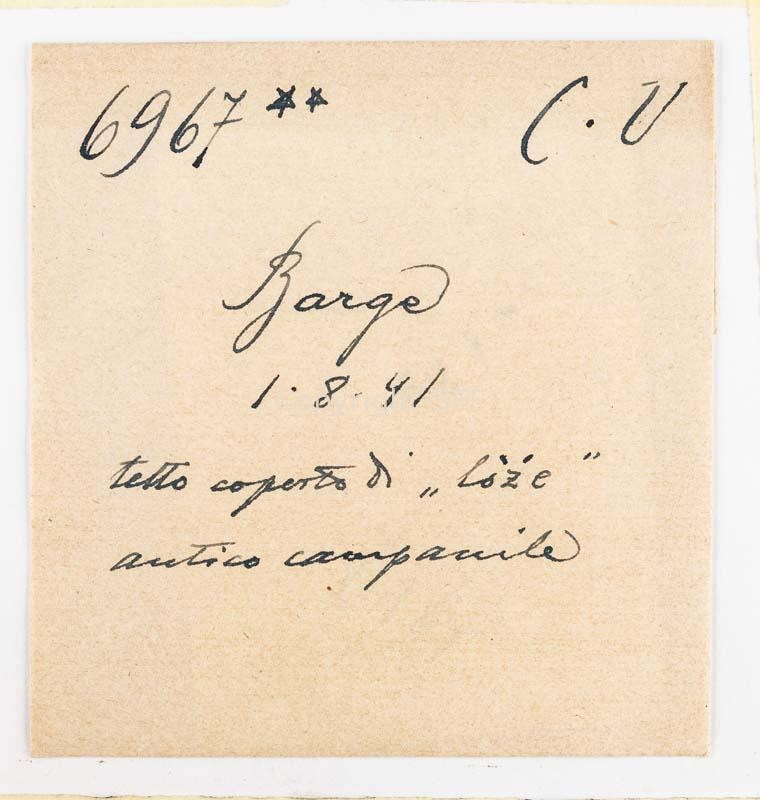 6967 ** C. V
Barge
1.8.41
tetto coperto di „lòże"
antico campanile